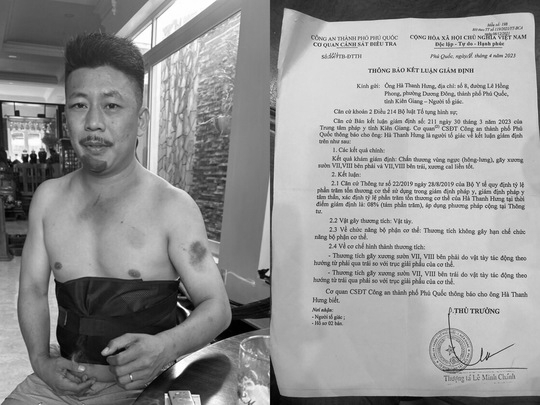 Mẫu số: 198
CÔNG AN THÀNH PHỐ PHÚ QUỐC
CƠ QUAN CẢNH SÁT ĐIỀU TRA
CỘNG HÒA XÃ HỘI CHỦ NGHĨA VIỆT NAM
Độc lập - Tự do - Hạnh phúc
Phú Quốc, ngày tháng 4 năm 2023
THÔNG BÁO KẾT LUẬN GIÁM ĐỊNH
Kính gửi: Ông Hà Thanh Hưng, địa chỉ: số 8, đường Lê Hồng
Phong, phường Dương Đông, thành phố Phú Quốc,
tỉnh Kiên Giang – Người tố giác.
Căn cứ khoản 2 Điều 214 Bộ luật Tố tụng hình sự;
Căn cứ Bản kết luận giám định số: 211 ngày 30 tháng 3 năm 2023 của
Trung tâm pháp y tỉnh Kiên Giang. Cơ quan CSĐT Công an thành phố Phú
Quốc thông báo cho ông Hà Thanh Hưng là người tố giác về kết luận giám định
trên như sau:
1. Các kết quả chính:
Kết quả khám giám định: Chấn thương vùng ngực (hông-lưng), gây xương
sườn VII,VIII bên phải và VII,VIII bên trái, xương cal liền tốt.
2. Kết luận:
2.1 Căn cứ Thông tư số 22/2019 ngày 28/8/2019 của Bộ Y tế quy định tỷ lệ
phần trăm tổn thương cơ thể sử dụng trong giám định pháp y, giám định pháp y
tâm thần, xác định tỷ lệ phần trăm tổn thương cơ thể của Hà Thanh Hưng tại thời
điểm giám định là: 08% (tám phần trăm), áp dụng phương pháp cộng tại Thông
tư.
2.2 Vật gây thương tích: Vật tày.
2.3 Về chức năng bộ phận cơ thể: Thương tích không gây hạn chế chức
năng bộ phận cơ thể.
2.4 Về cơ chế hình thành thương tích:
- Thương tích gây xương sườn VII, VIII bên phải do vật tày tác động theo
hướng từ phải qua trái so với trục giải phẫu của cơ thể.
- Thương tích gây xương sườn VII, VIII bên trái do vật tày tác động theo
hướng từ trái qua phải so với trục giải phẫu của cơ thể.
Cơ quan CSĐT Công an thành phố Phú Quốc thông báo cho ông Hà Thanh
Hưng biết.
Nơi nhận:
- Người tố giác ;
- Hồ sơ 02 bản.
THỦ TRƯỞNG
Thượng tá Lê Minh Chánh